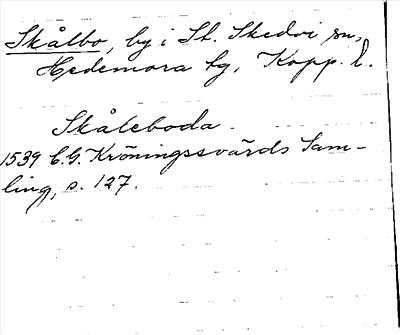 Skålbo, by i St. Skedvi sn,
Hedemora tg, Kopp. l.
Skåleboda.
1539 C.G. Kröningssvärds Sam-
ling, s. 127.